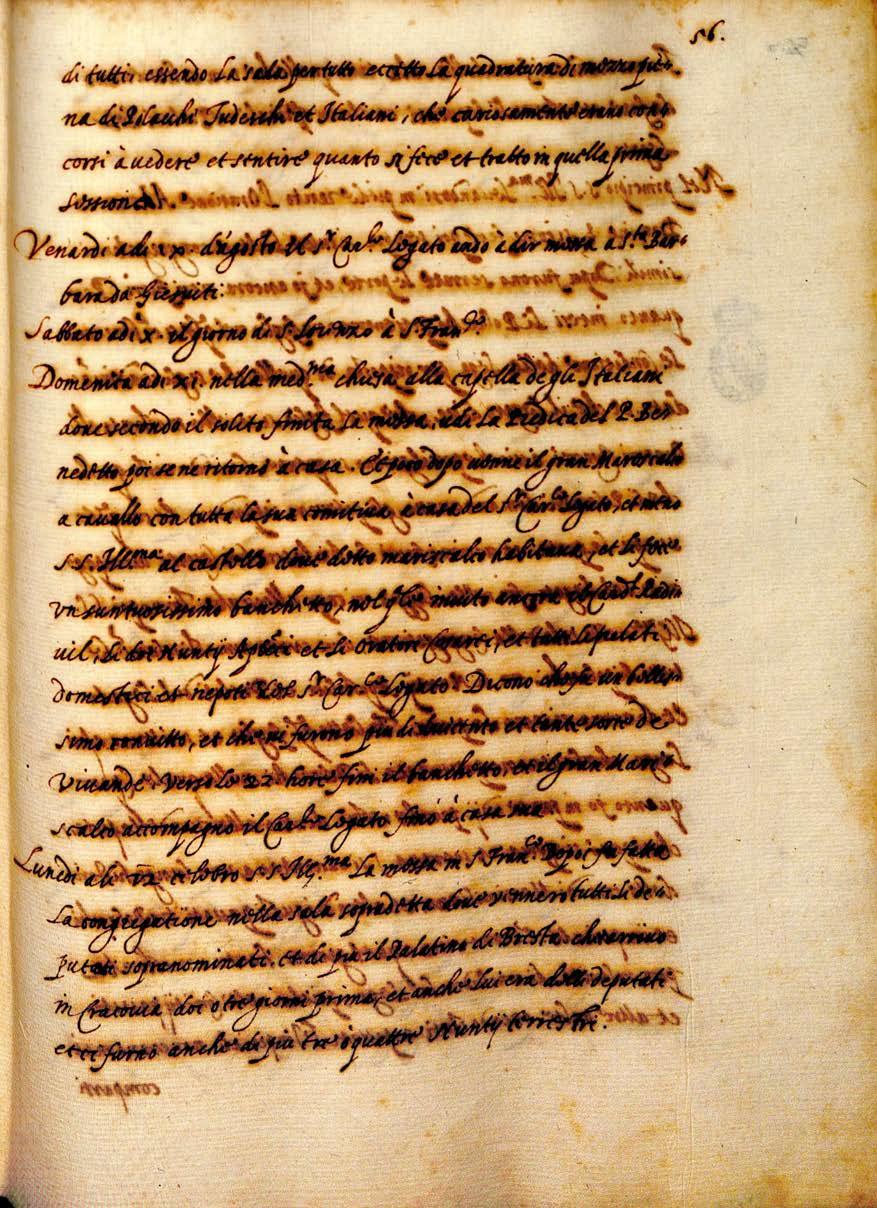 56.
di tutti, essendo la sala per tutto eccetto la quadratura di mezzo pie-
na di Polacchi Tudeschi et Italiani, che curiosamente erano con-
corsi à vedere et sentire quanto si fece et trattò in quella prima
sessione.
Venardi adi ix. d'agosto il S.r Car.le Legato andò à dir messa à S.ta Bar-
bara da Giesuiti.
Sabbato adi x. il giorno di S. Lorenzo à S. Fran.co
Domenica adi xi. nella med.ma chiesa alla capella degli Italiani
dove secondo il solito finita la messa, udì la Predica del P. Be-
nedetto poi se ne ritornò à casa. Et poco dopo venne il gran Marescalco
a cavallo con tutta la sua comitiva à casa del S.r Car.le Legato, et menò
S S. Ill.ma al castello dove detto mariscalco habitava, et li fece
un suntuosissimo banchetto, nel q.le invitò ancora il Card.l Radi-
vil, li doi Nuntij et li Oratori Cesarei, et tutti li prelati
domestici et nepoti del S.r Car.le Legato. Dicono che fu un bellis-
simo convitto, et che vi furono più di ducento et tante sorte de
vivande. Verso le 22. hore finì il banchetto, et il gran Mare-
scalco accompagnò il Car.le Legato fino à casa sua.
Lunedi adi 12 celebrò S S. Ill.ma la messa in S. Fran.co Dopoi fu fatta
la congregatione nella sala sopradetta dove vennero tutti li de-
putati sopranominati. et di più il Palatino di Bresta che arrivò
in Cracovia doi o tre giorni prima, et anche lui era delli deputati
et ci furno anche di più tre ò quattro Nuntij terrestri.